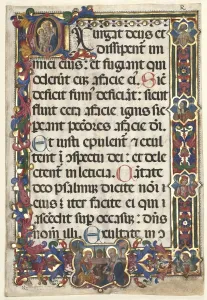 Exurgat deus et
dissipent ini
mici eius: et fugiant qui
oderūt eū afacie ei Sic
deficit fum deficiāt: sicut
fluit cera afacie ignis sic
pereant pccōres afacie dī
Et iusti epulent et exul
tent ī ospectu dei: et dele
ctent in leticia. Cātate
deo psalmū dicite nōi
eius iter facite ei qui
ascēdit sup occasū: dn̄s
nom illi. Exultate in